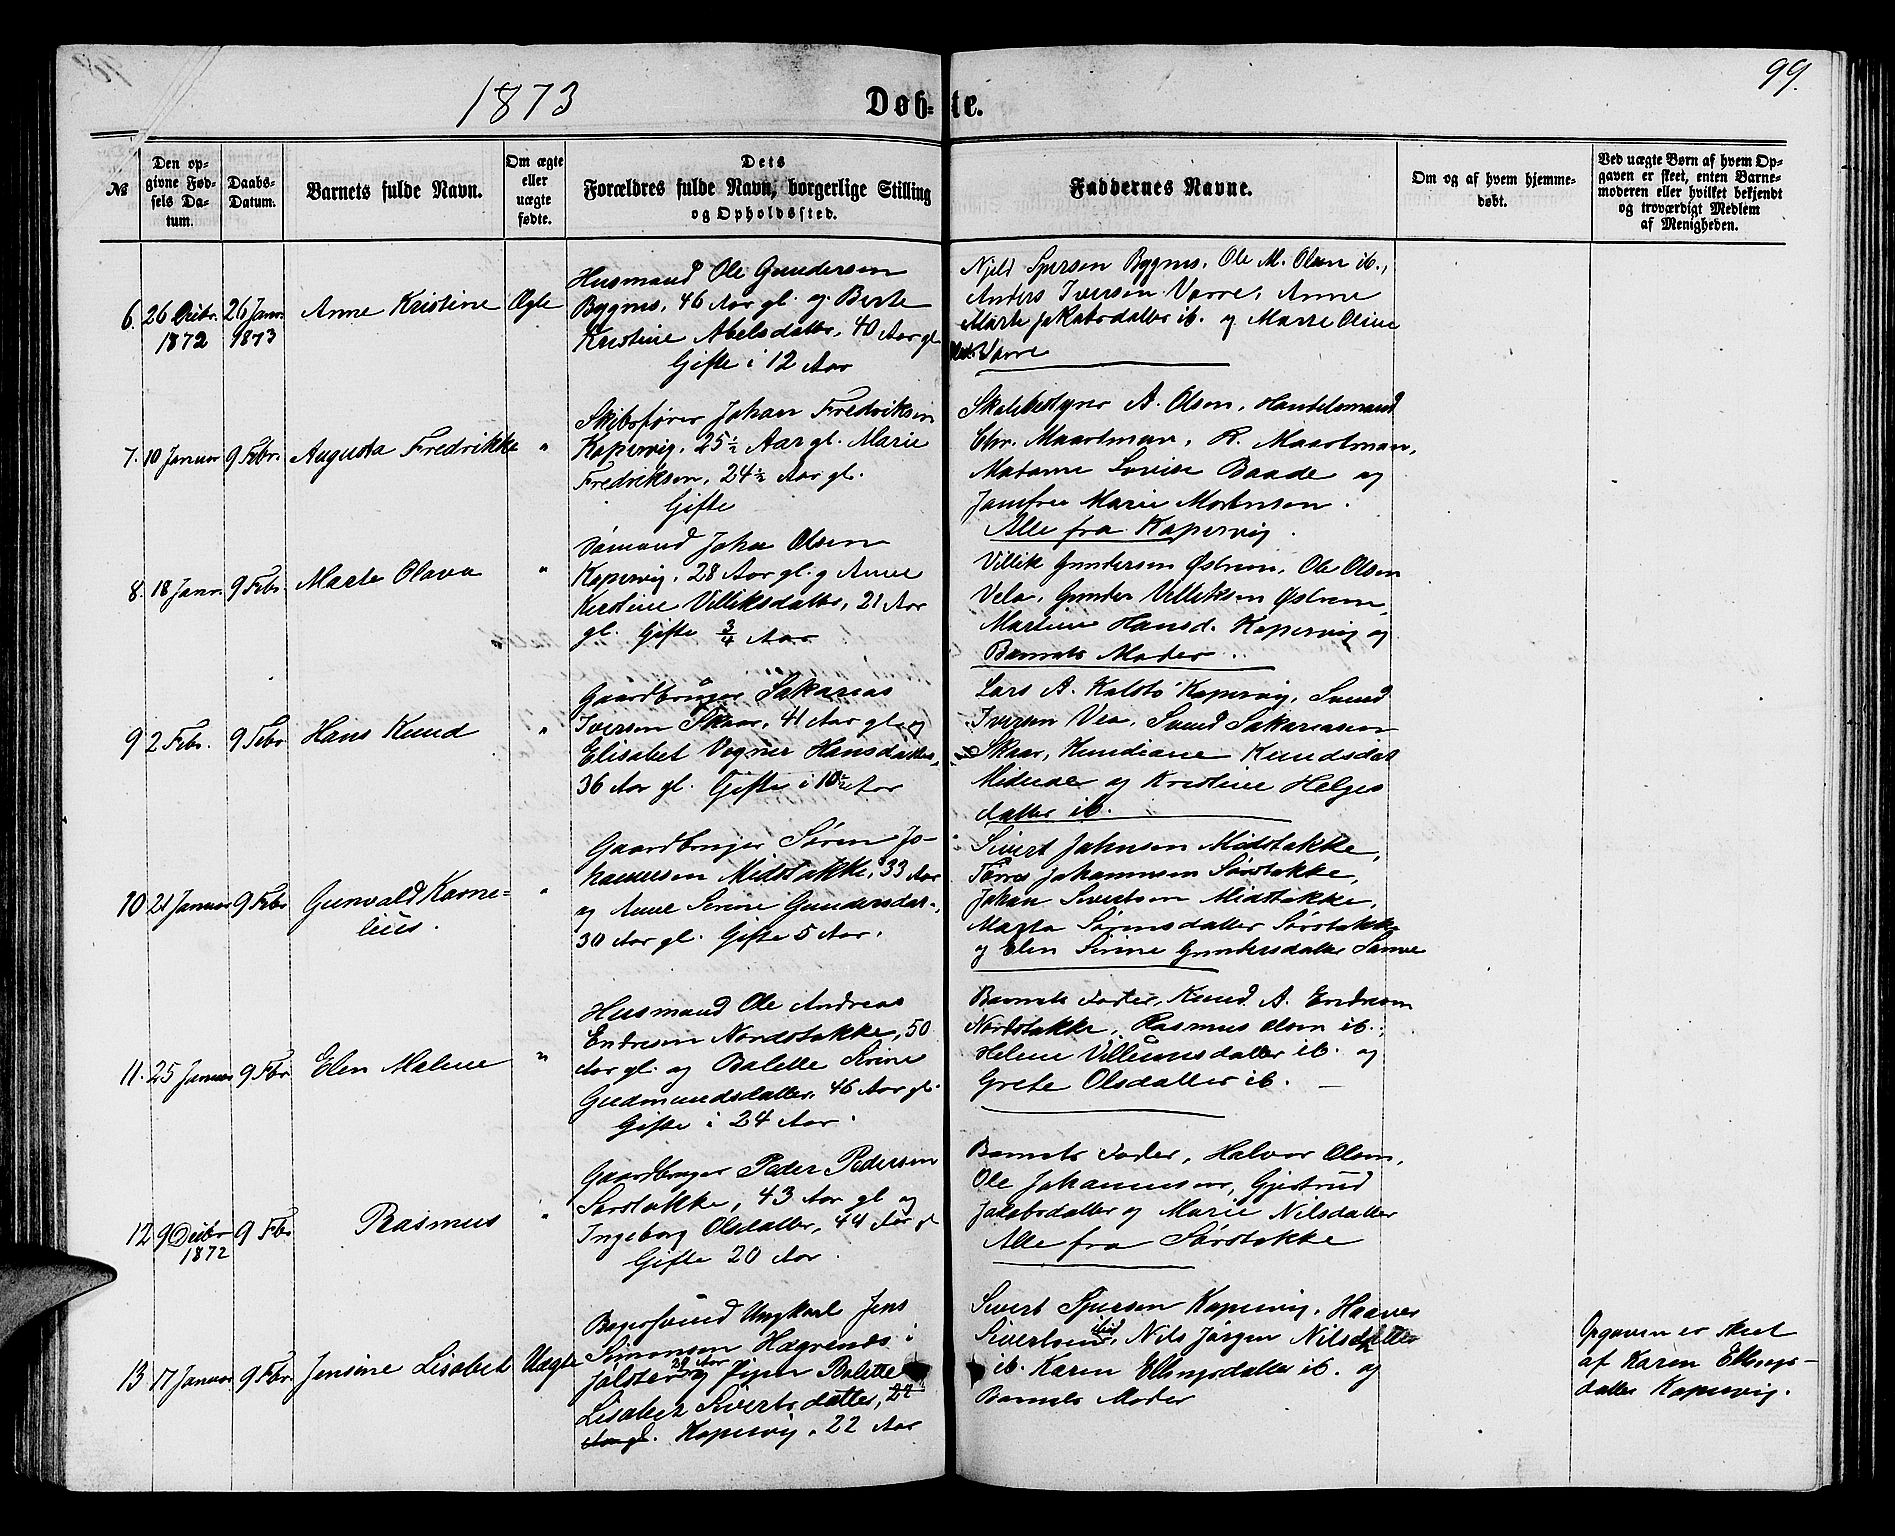 99.
1873
Døb-te.
№
Den opgivne Fødsels Datum.
Daabs-Datum.
Barnets fulde Navn.
Om ægte eller uægte fødte.
Dets Forældres fulde Navn, borgerlige Stilling og Opholdssted.
Faddernes Navne.
Om og af hvem hjemmedøbt.
Ved uægte Børn af hvem Opgaven er skeet, enten Barnemoderen eller hvilket bekjendt og troværdigt Medlem af Menigheden.
6. 26 Decbr. 1872
26 Janr. 1873
Anne Kristine
Ægte
Husmand Ole Gundersen
Bygnes, 46 Aar gl. og Berte
Kristine Abelsdatter, 40 Aar gl
Gifte i 12 Aar
Sjursen Bygnes, Ole M. Olsen ib.,
Anders Iversen Vorre, Anne
Marte Jakobsdatter ib. og Marte Oline
Vorre
7. 10 Januar
9 Febr.
Augusta Fredrikke
"
Skibsfører Johan Fredriksen
Kopervig, 25½ Aar gl. Marie
Fredriksen, 24½ Aar gl.
Gifte
Skolebestyrer A. Olsen, Handelsmand
Chr. Maartman, R. Maartman,
Madame Lovise Baade og
Jomfru Marie Mortensen.
Alle fra Kopervig.
8. 18 Janr.
9 Febr.
Marte Olava
"
Sømand Johan Olsen
Kopervig, 28 Aar gl. og Anne
Kirstine Villiksdatter, 21 Aar
gl. Gifte ¾ Aar
Villik Gundersen Østrem, Ole Olsen
Vela, Gunder Villiksen Østrem,
Martine Hansd. Kopervig og
Barnets Moder.
9 2 Febr.
9 Febr
Hans Knud
"
Gaardbruger Sakarias
Iversen Skaar, 41 Aar gl. og
Elisabet Vogner Hansdatter,
36 Aar gl. Gifte i 10½ Aar
Lars A. Kolstø Kopervig, Svend
Iversen Vea, Svend Sakariasen
Skaar, Knudiane Knudsdat
og Kristine Helges
datter ib.
10 21 Januar
9 Febr
Gunvald Korne-
lius.
"
Gaardbruger Søren Jo-
hannesen Midstokke, 33 Aar
og Anne Serine Gundersdat.,
30 Aar gl. Gifte 5 Aar.
Sivert Johnsen Midstokke,
Tørres Johannesen Sørstokke,
Johan Sivertsen Midstokke,
Marta Sørensdatter Sørstokke
og Elen Serine Gundersdatter Samme
11. 25 Januar
9 Febr
Elen Malene
"
Husmand Ole Andreas
Endresen Nordstokke, 50
Aar gl. og Bolette Serine
Gudmundsdatter, 46 Aar gl.
Gifte i 24 Aar.
Barnets Fader, Knud A. Endresen
Nordstokke, Rasmus Olsen ib.,
Helene Villumsdatter ib. og
Grete Olsdatter ib.
12 9 Decbr 1872
9 Febr
Rasmus
"
Gaardbruger Peder Pedersen
Sørstokke, 43 Aar gl og
Ingeborg Olsdatter, 44 Aar gl
Gifte 20 Aar.
Barnets Fader, Halvor Olsen,
Ole Johannesen, Gjertrud
Jakobsdatter og Marie Nilsdatter
Alle fra Sørstokke
13 17 Januar
9 Febr
Jensine Lisabet
Uægte
Bagersvend Ungkarl Jens
Simonsen Hegrenes i
Jølster 29 Aar og Pigen Bolette
Lisabet Sivertsdatter, 22
Aar gl. Kopervig, 22 Aar
Sivert Sjursen Kopervig, Haaver
Sivertsen ibid, Nils Jørgen Nilsdatter
ib. Karen Ellingsdatter ib. og
Barnets Moder
Opgaven er skeet
af Karen Ellings-
datter Kopervig.